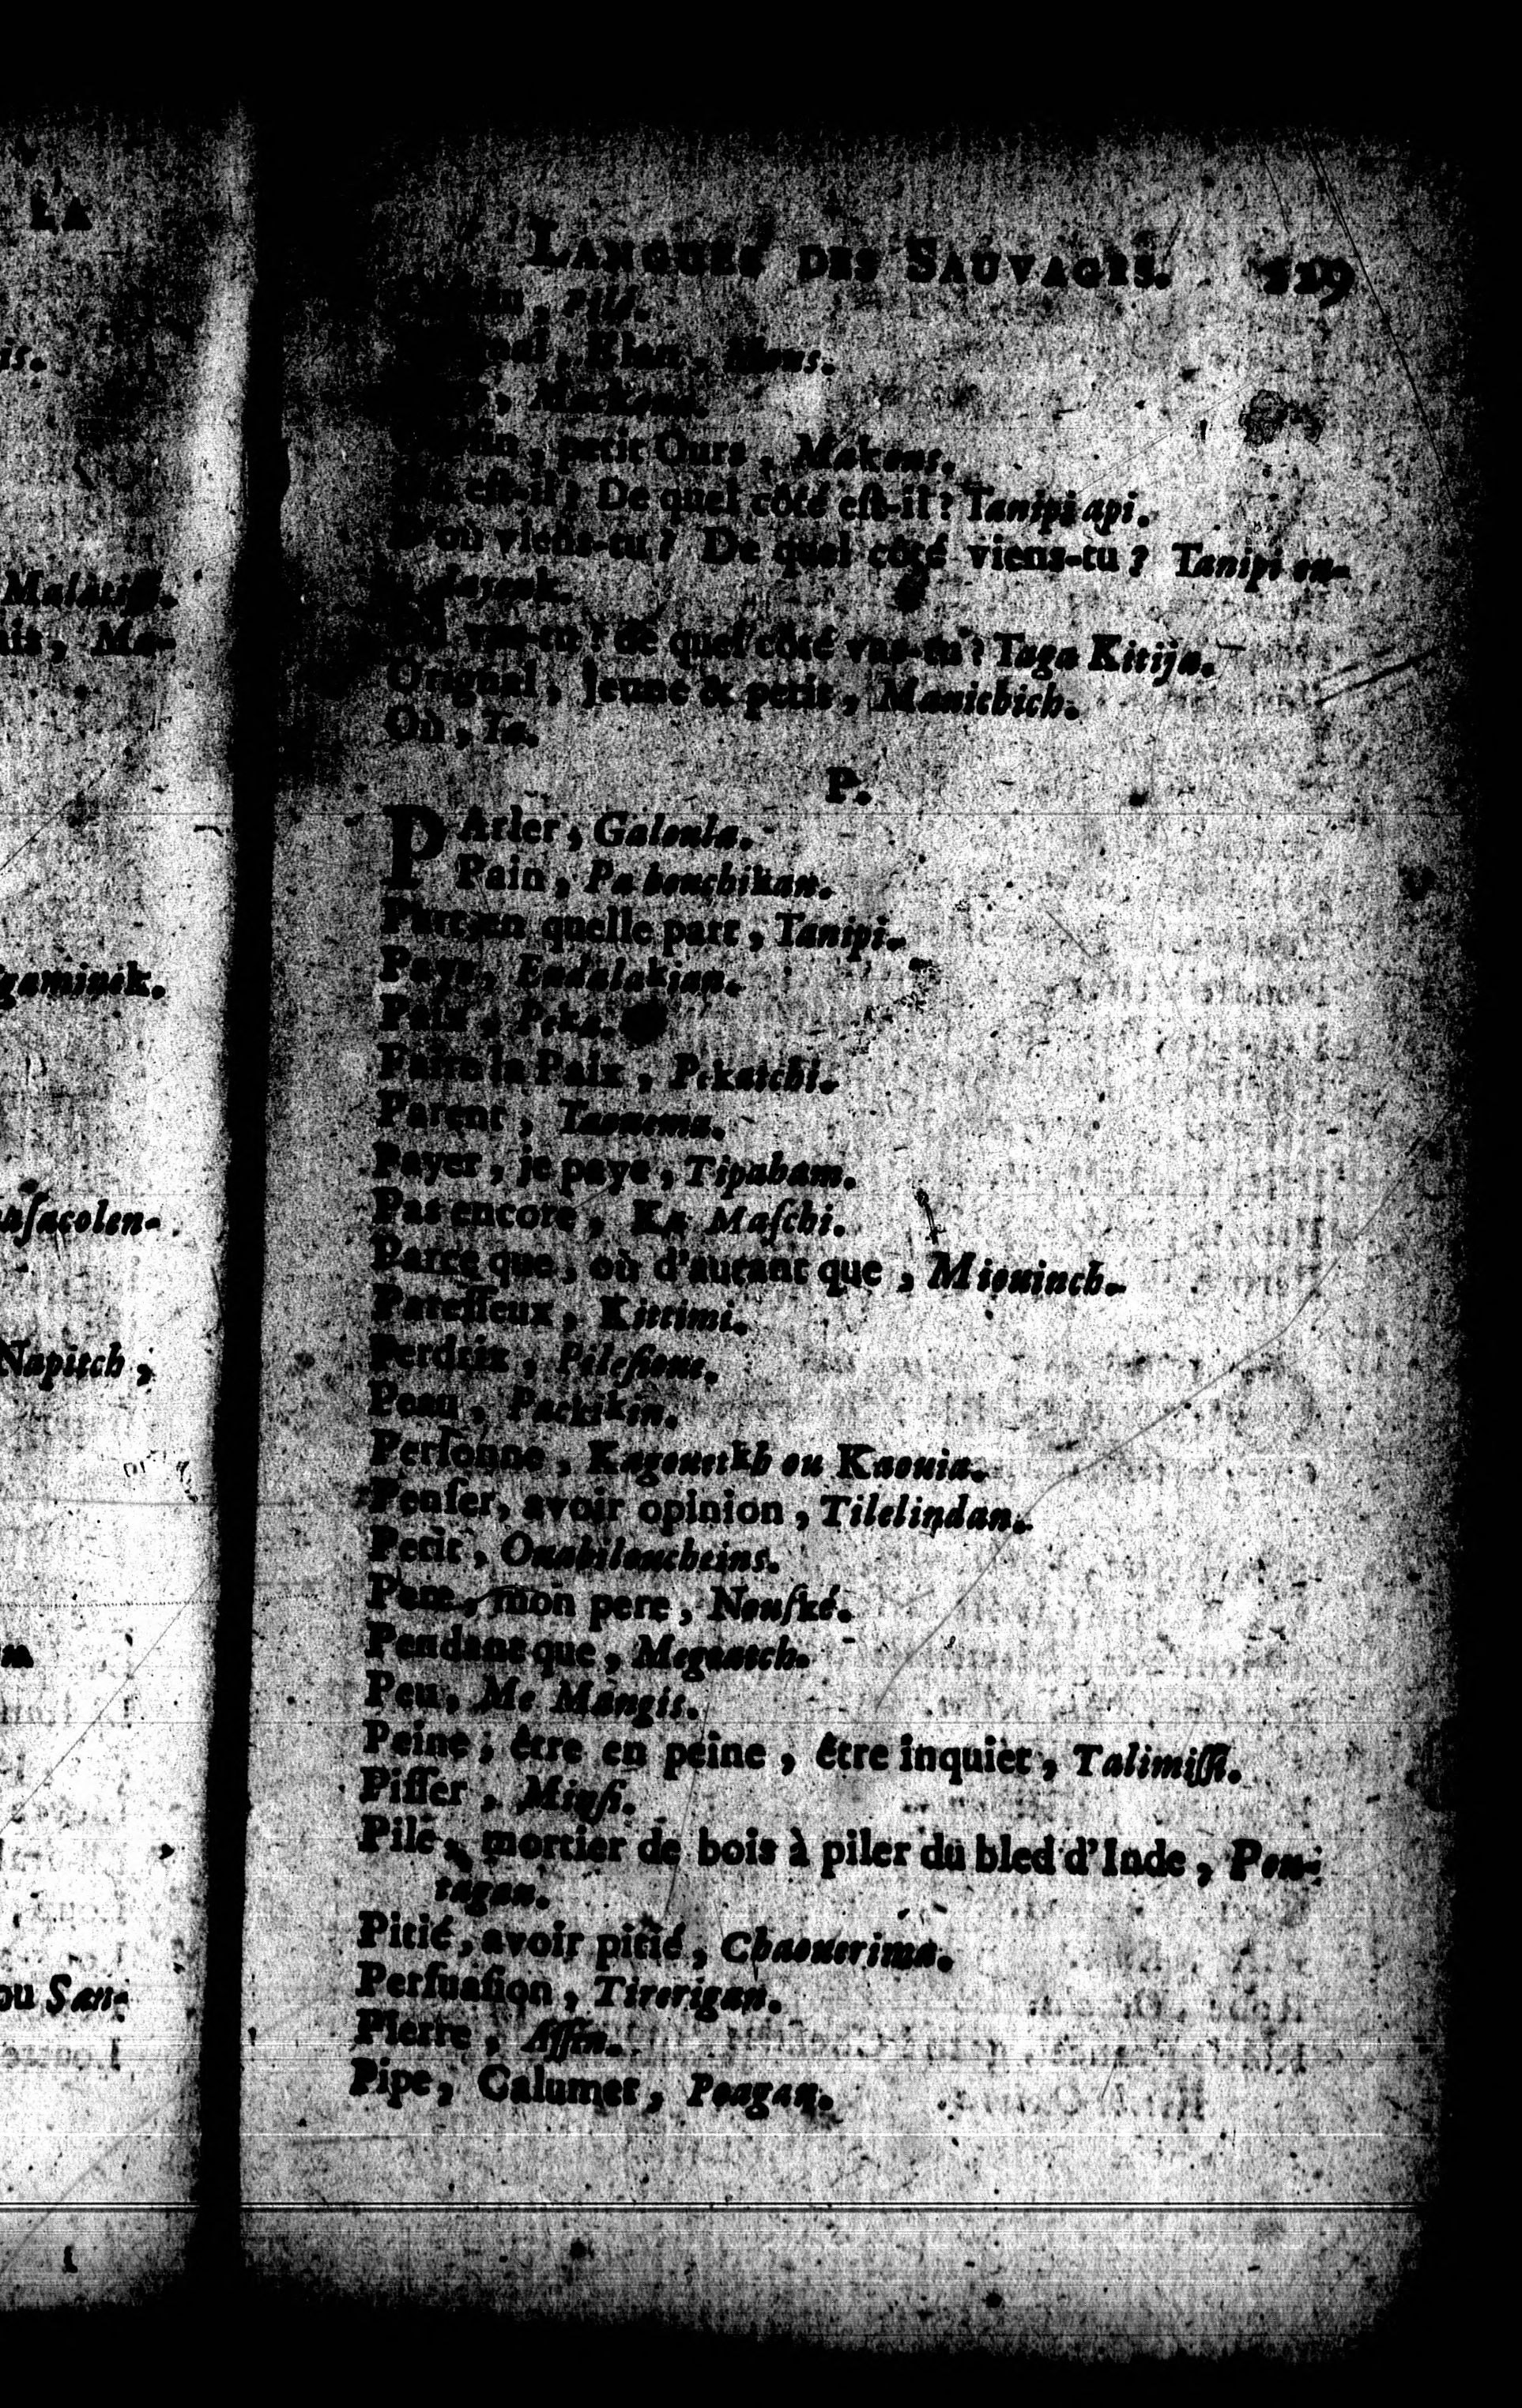 LA
is.
Malatissi.
ais, Ma-
gaminek.
asacolen-
Napitch,
ou San-
LANGUES DES SAUVAGES. 229
Pilé.
Elan, Mons.
Mackoua.
petit Ours, Makons.
est-il? De quel côté est-il? Tanipi api.
D'où viens-tu? De quel côté viens-tu? Tanipi en-
dayenk.
vas-tu? de quel côté vas-tu? Taga Kitija.
Orignal, jeune & petit, Manichich.
Où, Ta.
P.
PArler, Galoula.
Pain, Pabouchikan.
Part, en quelle part, Tanipi.
Pays, Endalakian.
Paix, Peka.
Faire la Paix, Pekatchi.
Parent, Taouema.
Payer, je paye, Tipaham.
Pas encore, Ka Maſchi.
Parce que, où d'autant que, Miouinch.
Pareſſeux, Kittimi.
Perdrix, Pileſioue.
Peau, Packikin.
Perſonne, Kagouetkh ou Kaouia.
Penſer, avoir opinion, Tilelindan.
Petit, Ouabiloucheins.
Pere, mon pere, Nouſké.
Pendant que, Megoatch.
Peu, Me Mangis.
Peine; être en peine, être inquiet, Talimiſſi.
Piſſer, Minſi.
Pile, mortier de bois à piler du bled d'Inde, Pou-
tagan.
Pitié, avoir pitié, Chaouerima.
Perſuaſion, Tirerigan.
Pierre, Aſſin.
Pipe, Calumet, Poagan.